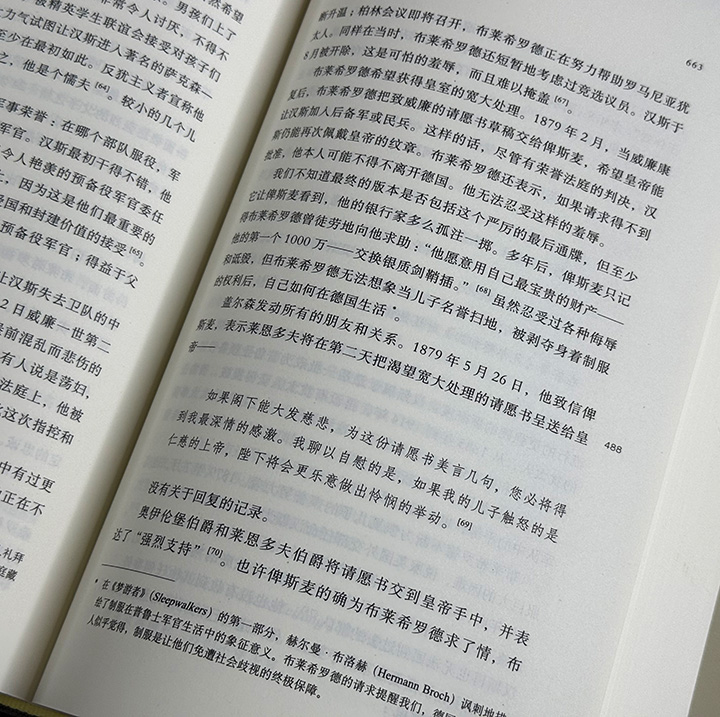 然希望
常令人讨厌，不得不
男孩们上了
一般精英学生联谊会接受对孩子们
力气试图让汉斯进入著名的萨克森—
至少在最初如此。反犹主义者宣称他
之，他是个懦夫[64]。较小的几个儿
军事荣誉：在哪个部队服役，军
军官。汉斯最初干得不错，他
令人艳羡的预备役军官委任
上，因为这是他们最重要的
爱国和封建价值的接受[65]。
预备役军官；得益于父
让汉斯失去卫队的中
2日威廉一世第二
是前混乱而悲伤的
有人说是荡妇，
法庭上，他被
这次指控和
中有过更
正在不
礼拜
庭藏
663
断升温；柏林会议即将召开，布莱希罗德正在努力帮助罗马尼亚犹
太人。同样在当时，布莱希罗德还短暂地考虑过竞选议员。汉斯于
8月被开除，这是可怕的羞辱，而且难以掩盖[67]。
布莱希罗德希望获得皇室的宽大处理。1879年2月，当威廉康
复后，布莱希罗德把致威廉的请愿书草稿交给俾斯麦，希望皇帝能
让汉斯加入后备军或民兵。这样的话，尽管有荣誉法庭的判决，汉
斯仍能再次佩戴皇帝的纹章。布莱希罗德还表示，如果请求得不到
批准，他本人可能不得不离开德国。他无法忍受这样的羞辱。
我们不知道最终的版本是否包括这个严厉的最后通牒，但至少
它让俾斯麦看到，他的银行家多么孤注一掷。多年后，俾斯麦只记
得布莱希罗德曾徒劳地向他求助：“他愿意用自己最宝贵的财产——
他的第一个1000万——交换银质剑鞘插。”[68]虽然忍受过各种侮辱
和诋毁，但布莱希罗德无法想象当儿子名誉扫地，被剥夺身着制服
的权利后，自己如何在德国生活*。
盖尔森发动所有的朋友和关系。1879年5月26日，他致信俾
斯麦，表示莱恩多夫将在第二天把渴望宽大处理的请愿书呈送给皇
帝——
488
如果阁下能大发慈悲，为这份请愿书美言几句，您必将得
到我最深情的感激。我聊以自慰的是，如果我的儿子触怒的是
仁慈的上帝，陛下将会更乐意做出怜悯的举动。[69]
没有关于回复的记录。
奥伊伦堡伯爵和莱恩多夫伯爵将请愿书交到皇帝手中，并表
达了“强烈支持”[70]。也许俾斯麦的确为布莱希罗德求了情，布
* 在《梦游者》（Sleepwalkers）的第一部分，赫尔曼·布洛赫（Hermann Broch）讽刺地描
绘了制服在普鲁士军官生活中的象征意义。布莱希罗德的请求提醒我们，德
人似乎觉得，制服是让他们免遭社会歧视的终极保障。